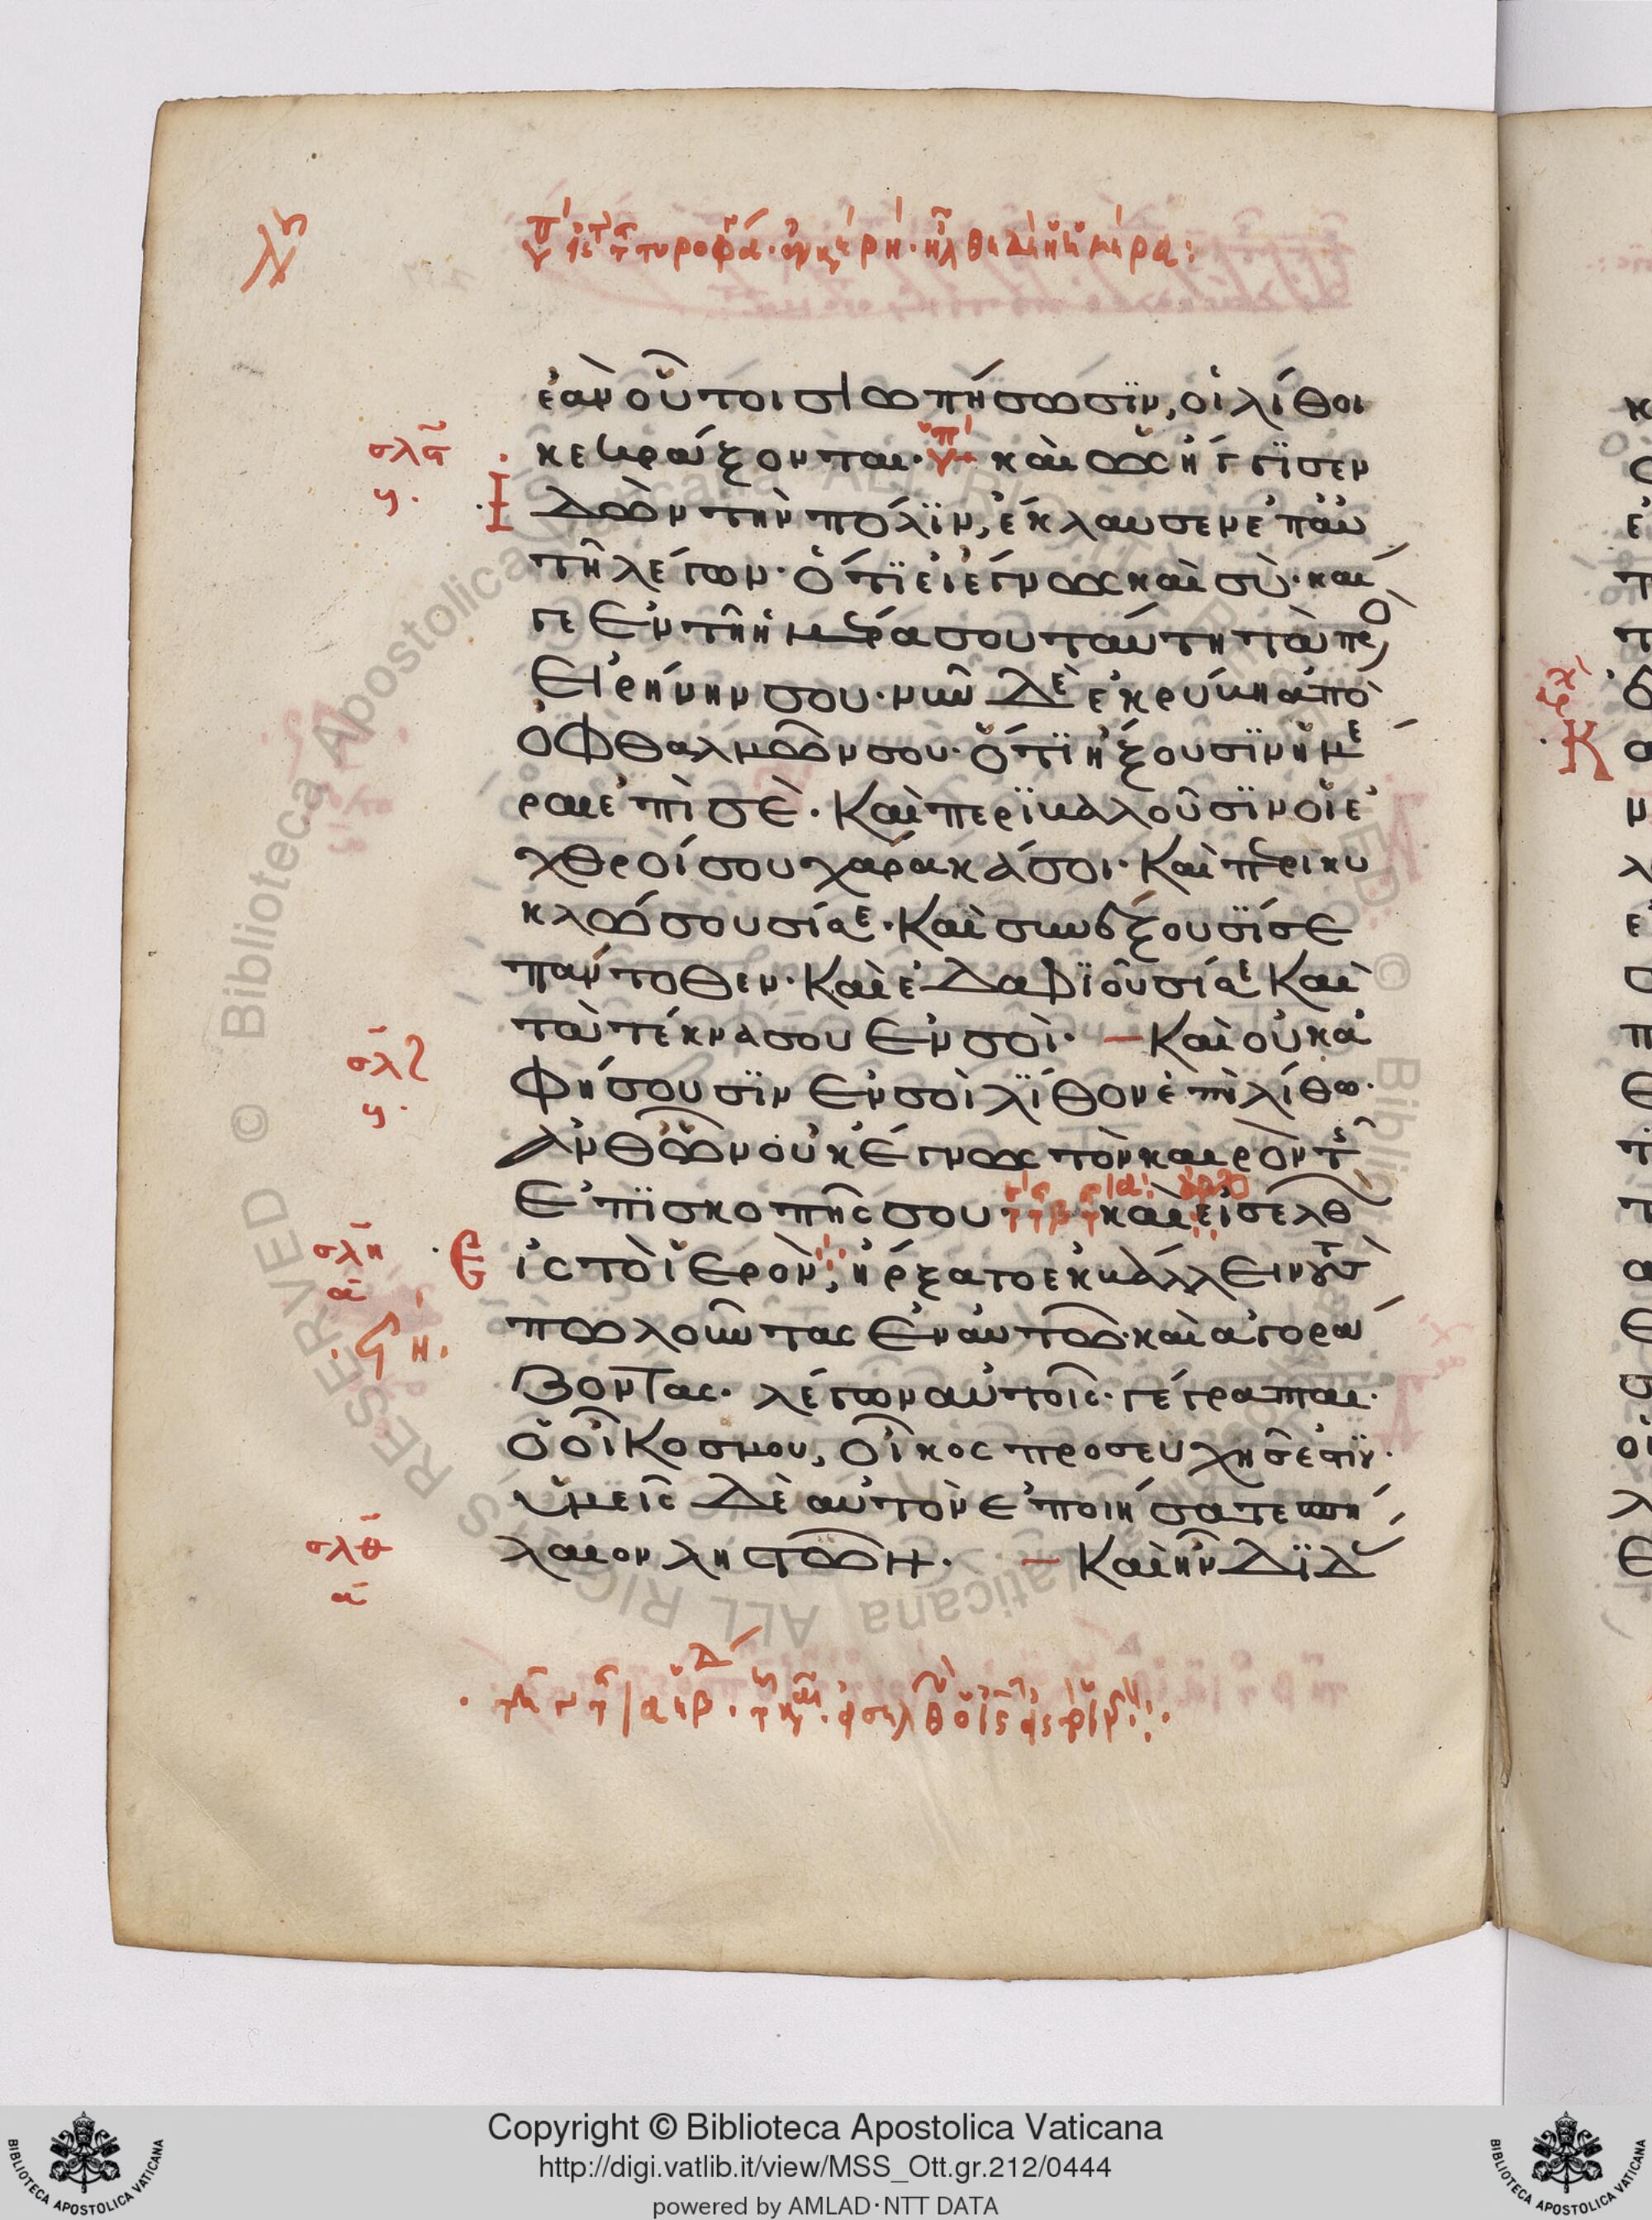 ἐὰν οὗτοι σιωπήσωσϊν, οἱ λίθοι
κεκράξονται. καὶ ὡς ἤγγϊσεν
ἰδὼν τὴν πόλϊν, ἔκλαυσεν ἐπ αὐ
τῆ λέγων. ὅτϊ εἰ ἔγνως καὶ σὺ. καί
γε ἐν τῆ ἡμέρα σου ταύτη τὰ πρὸ
εἰρήνην σου. νῦν δὲ ἐκρύβη ἀπὸ
ὀφθαλμῶν σου. ὅτϊ ἥξουσϊν ἡμέ
ραι ἐπὶ σὲ. καὶ περϊβαλοῦσϊν οἱ ἐ
χθροί σου χάρακά σοι. καὶ περικυ
κλώσουσί σε. καὶ συνέξουσΐ σε
πάντοθεν. καὶ ἐδαφϊοῦσί σε καὶ
τὰ τέκνα σου ἐν σοὶ. καὶ οὐκ ἀ
φήσουσϊν ἐν σοὶ λίθον ἐπὶ λίθω.
ἀνθ ὧν οὐκ ἔγνως τὸν καιρὸν τῆς
ἐπϊσκοπῆς σου καὶ εἰσελθ
ἰς τὸ ἱερὸν, ἤρξατο ἐκβάλλειν τοὺς
πωλοῦντας ἐν αὐτῶ. καὶ ἀγορά
ζοντας. λέγων αὐτοῖς. γέγραπται.
ὁ οἶκος μου, οἶκος προσευχῆς ἐστϊν.
ὑμεῖς δὲ αὐτὸν ἐποιήσατε σπή
λαιον ληστῶν. καὶ ἦν δϊδ
σλϛ
σλζ
σλη
α
σλθ
α
Copyright © Biblioteca Apostolica Vaticana
http://digi.vatlib.it/view/MSS_Ott.gr.212/0444
powered by AMLAD·NTT DATA
BIBLIOTECA APOSTOLICA VATICANA
BIBLIOTECA APOSTOLICA VATICANA